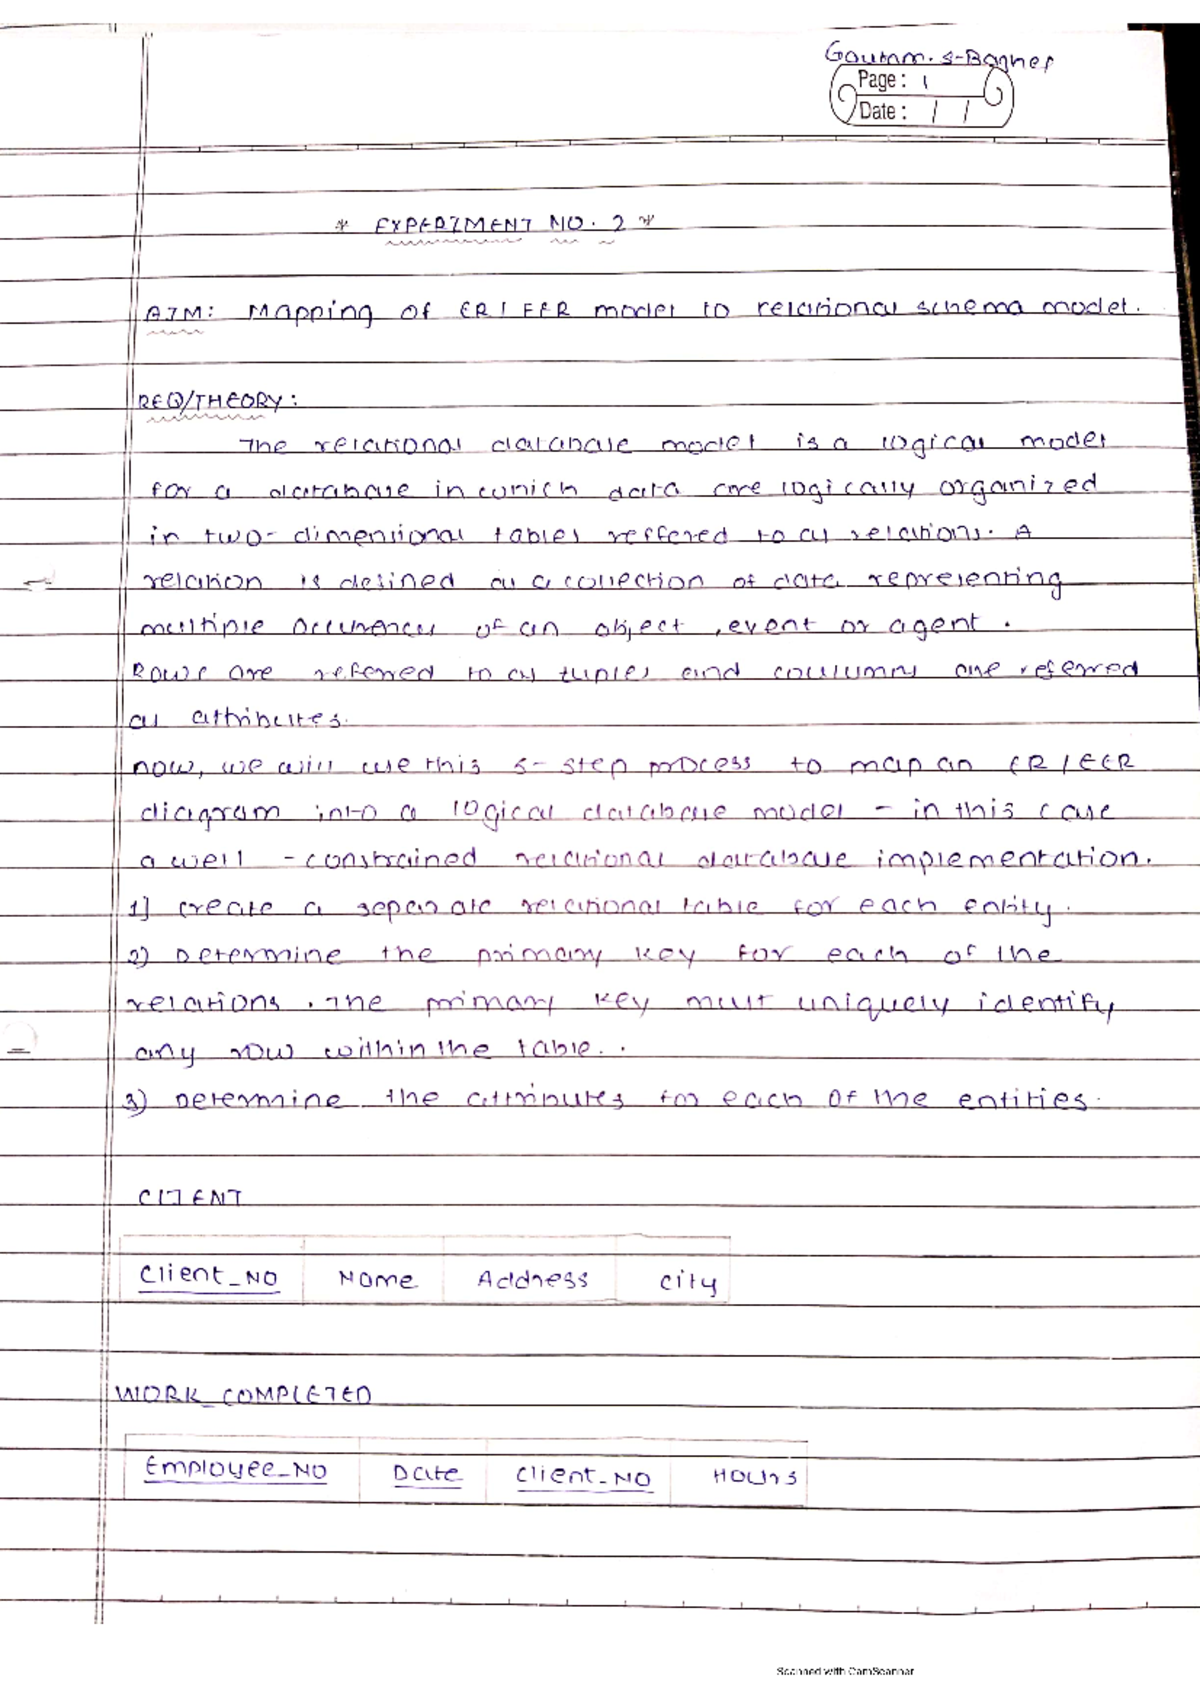 Goutam.S-Bagher
Page: 1
Date: / /
* EXPERIMENT NO. 2 *
AIM: Mapping of ER/EER model to relational schema model.
REQ/THEORY:
The relational database model is a logical model
for a database in which data are logically organized
in two-dimensional tables reffered to as relations. A
relation is defined as a collection of data representing
multiple occurences of an object, event or agent.
Rows are referred to as tuples and coulumns are referred
as attributes.
now, we will use this 5-step process to map an ER/EER
diagram into a logical database model - in this case
a well-constrained relational database implementation.
1] create a separate relational table for each entity.
2) Determine the primary key for each of the
relations. The primary key must uniquely identify
any row within the table..
3) Determine the attributes for each of the entities.
CLIENT
Client_NO Name Address City
WORK_COMPLETED
Employee_NO Date Client_NO Hours
Scanned with CamScanner